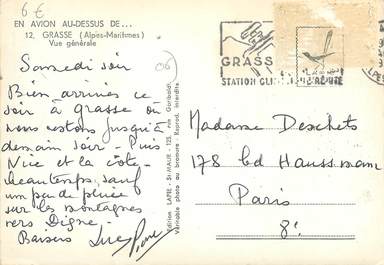 6 €
EN AVION AU-DESSUS DE...
12. GRASSE (Alpes-Maritimes)
Vue générale
06
Samedi soir
Bien arrivés ce
soir à grasse ou
nous restons jusqu'à
demain soir - Puis
Nice et la côte -
beau temps, sauf
un peu de pluie
sur les montagnes
vers Digne.
Baisers
Edition LAPIE - St-MAUR - 125, rue Garibaldi
Véritable photo au bromure - Reprod. interdite
GRASSE
STATION
Madame Deschets
178 bd Haussmann
Paris
8e